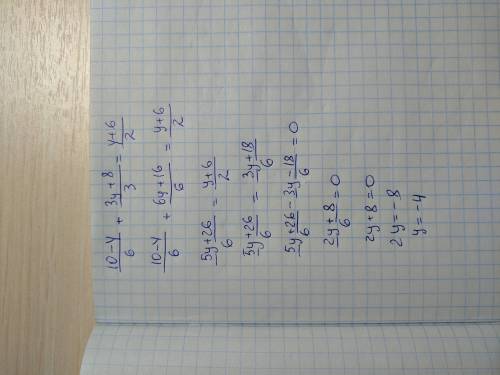 (10-y)/6 + (3y+8)/3 = (y+6)/2
(10-y)/6 + (6y+16)/6 = (y+6)/2
(5y+26)/6 = (y+6)/2
(5y+26)/6 = (3y+18)/6
(5y+26-3y-18)/6 = 0
(2y+8)/6 = 0
2y+8=0
2y=-8
y=-4